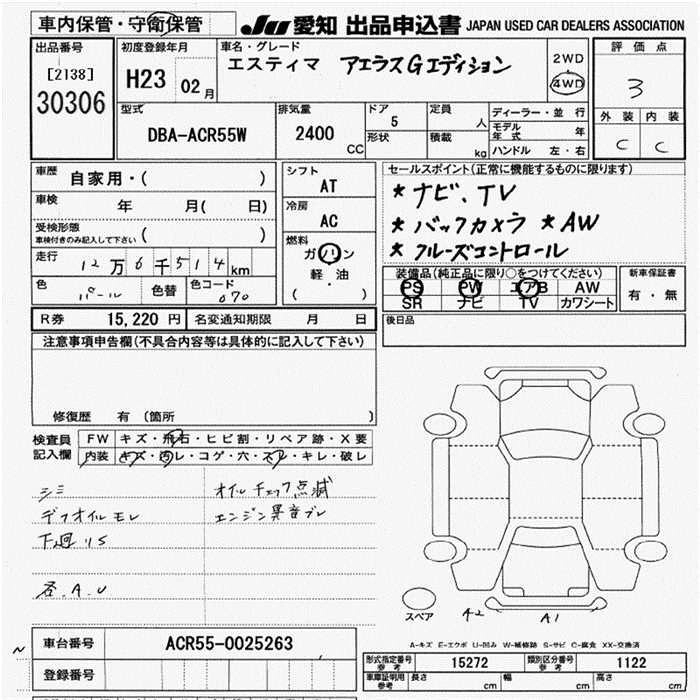 車内保管・守衛保管
JU 愛知 出品申込書 JAPAN USED CAR DEALERS ASSOCIATION
出品番号
[2138]
30306
初度登録年月
H23 02月
車名・グレード
エスティマ アエラスGエディション
2WD
4WD
評価点
3
外装 内装
C C
型式
DBA-ACR55W
排気量
2400 CC
ドア
5
形状
定員
人
積載
kg
ディーラー・並行
モデル年式 年
ハンドル 左・右
車歴 自家用・( )
車検 年 月( 日)
受検形態
車検付きのみ記入して下さい ( )
走行 12万6千514km
色 パール 色替 色コード 070
シフト
AT
冷房
AC
燃料
ガソリン
軽・油
( )
セールスポイント(正常に機能するものに限ります)
* ナビ、TV
* バックカメラ * AW
* クルーズコントロール
装備品(純正品に限り○をつけてください)
PS PW エアB AW
SR ナビ TV カワシート
新車保証書
有・無
R券 15,220 円 名変通知期限 月 日
後日品
注意事項申告欄(不具合内容等は具体的に記入して下さい)
修復歴 有 (箇所 )
検査員記入欄
FW キズ・飛石・ヒビ割・リペア跡・X要
内装 キズ・汚レ・コゲ・穴・スレ・キレ・破レ
シミ
デフオイルモレ
下廻りS
各.A.U
オイルチェック点滅
エンジン異音ブレ
スペア
A2
A1
A-キズ E-エクボ U-凹み W-補修跡 S-サビ C-腐食 XX-交換済
車台番号 ACR55-0025263
登録番号
形式指定番号参考 15272 類別区分番号参考 1122
車庫証明用参考 長さ cm 幅 cm 高さ cm